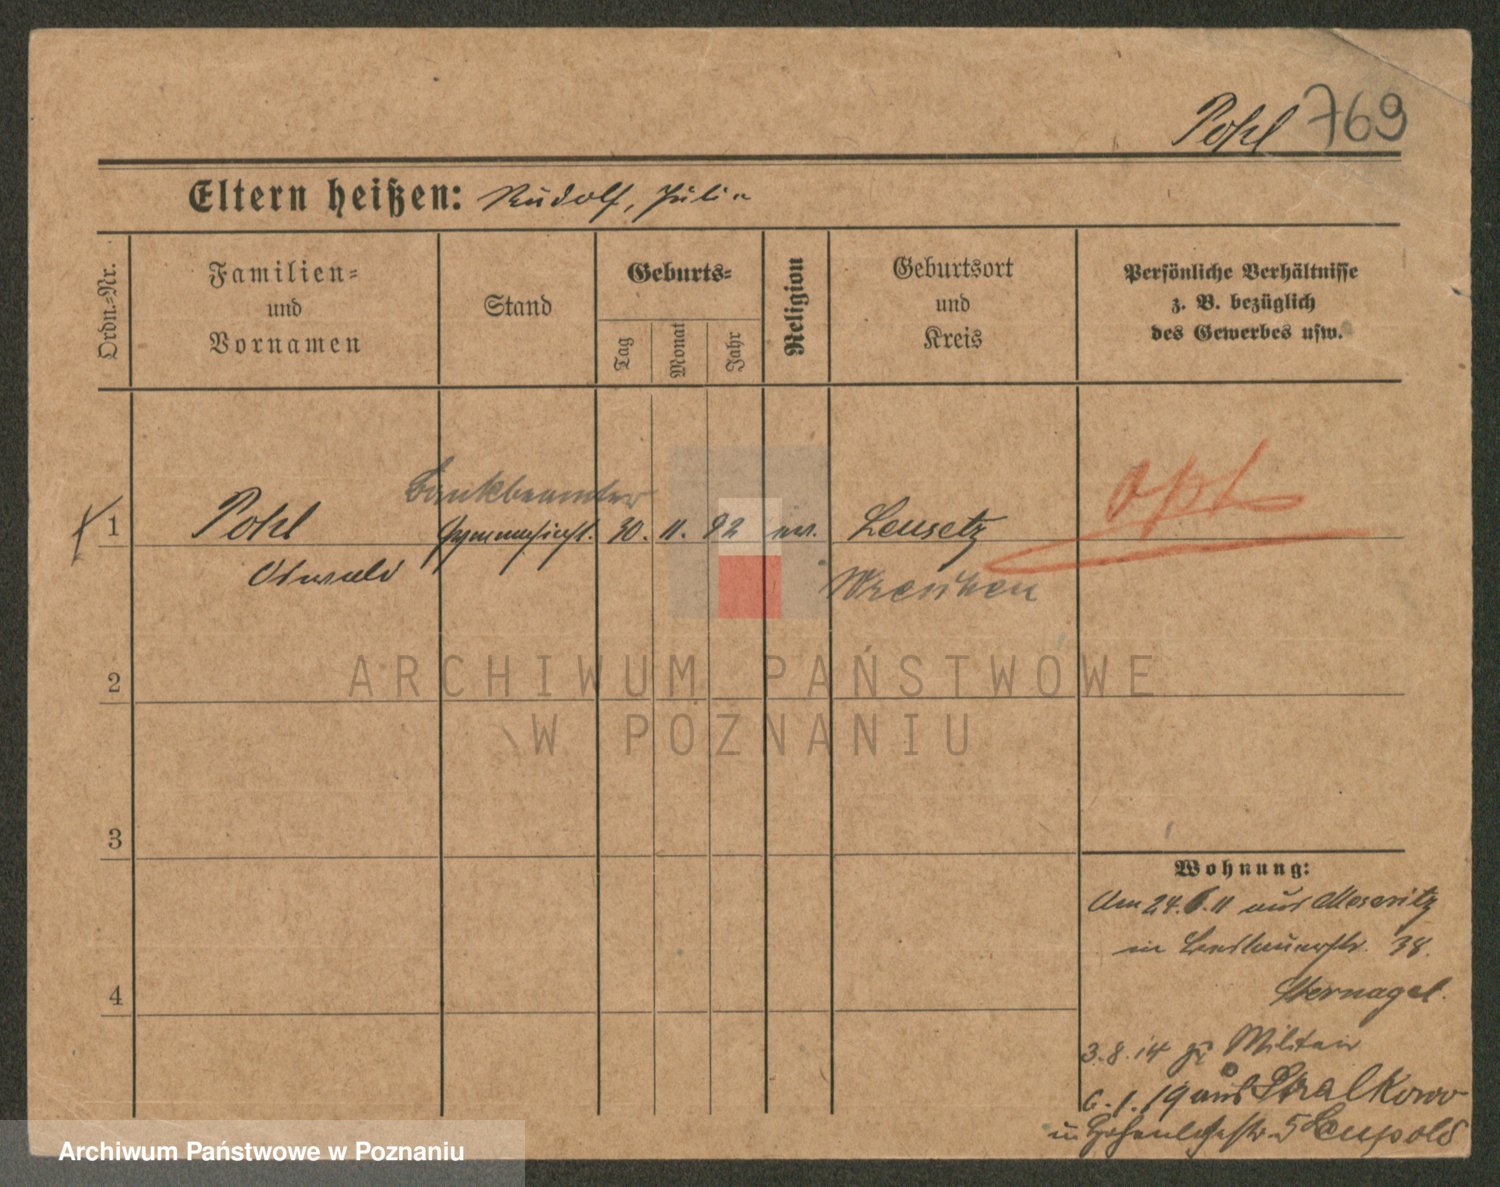 Pohl 769
Eltern heißen: Rudolf, Julie
Ordn.-Nr.
Familien-
und
Vornamen
Stand
Geburts-
Tag
Monat
Jahr
Religion
Geburtsort
und
Kreis
Persönliche Verhältnisse
z. B. bezüglich
des Gewerbes usw.
Bankbeamter
1 Pohl Gymnasiast. 30. 11. 92 ev.
Oswald Wreschen
opt
2
ARCHIWUM PAŃSTWOWE
W POZNANIU
3
Wohnung:
Am 24.6.11 aus Meseritz
in 38.
Sternagel.
4
3.8.14 zu Militair
6.1.19 aus Stralkowo
in 5 Leupold
Archiwum Państwowe w Poznaniu